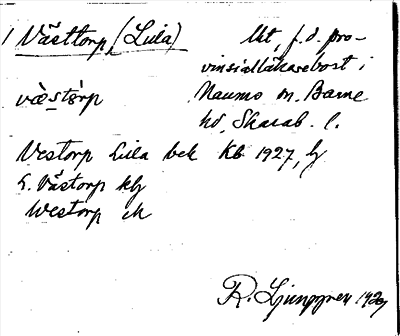 1 Västtorp, (Lilla)
lht, f.d. pro-
vinsialläkarebost i
Naumo sn. Barne
hd, Skarab. l.
væ̀stórp
Vestorp Lilla bek Kb 1927, hf
L. Västorp kbf
Westorp ek
R. Ljunggren 1929